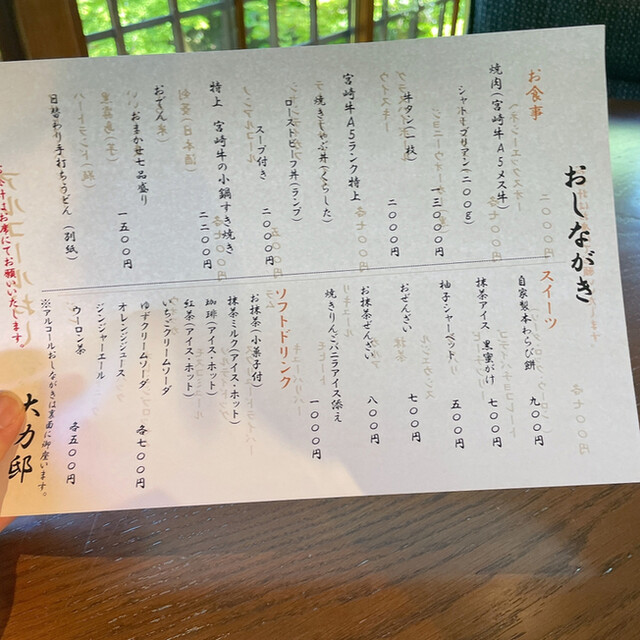 おしながき
お食事
焼肉(宮崎牛A5メス牛)
シャトーブリアン(200g)
一三〇〇〇円
牛タン(一枚)
二〇〇〇円
宮崎牛A5ランク特上
焼きしゃぶ丼(くらした)
ローストビーフ丼(ランプ)
スープ付き
二〇〇〇円
特上 宮崎牛の小鍋すき焼き
二二〇〇円
おでん
おまかせ七品盛り
一五〇〇円
日替わり手打ちうどん(別紙)
スイーツ
自家製本わらび餅
九〇〇円
抹茶アイス 黒蜜がけ
七〇〇円
柚子シャーベット
五〇〇円
おぜんざい
七〇〇円
お抹茶ぜんざい
八〇〇円
焼きりんごバニラアイス添え
一〇〇〇円
ソフトドリンク
お抹茶(小菓子付)
抹茶ミルク(アイス・ホット)
珈琲(アイス・ホット)
紅茶(アイス・ホット)
いちごクリームソーダ
ゆずクリームソーダ
各七〇〇円
オレンジジュース
ジンジャーエール
ウーロン茶
各五〇〇円
※アルコールおしながきは裏面に御座います。
お席にてお願いいたします。
大力邸